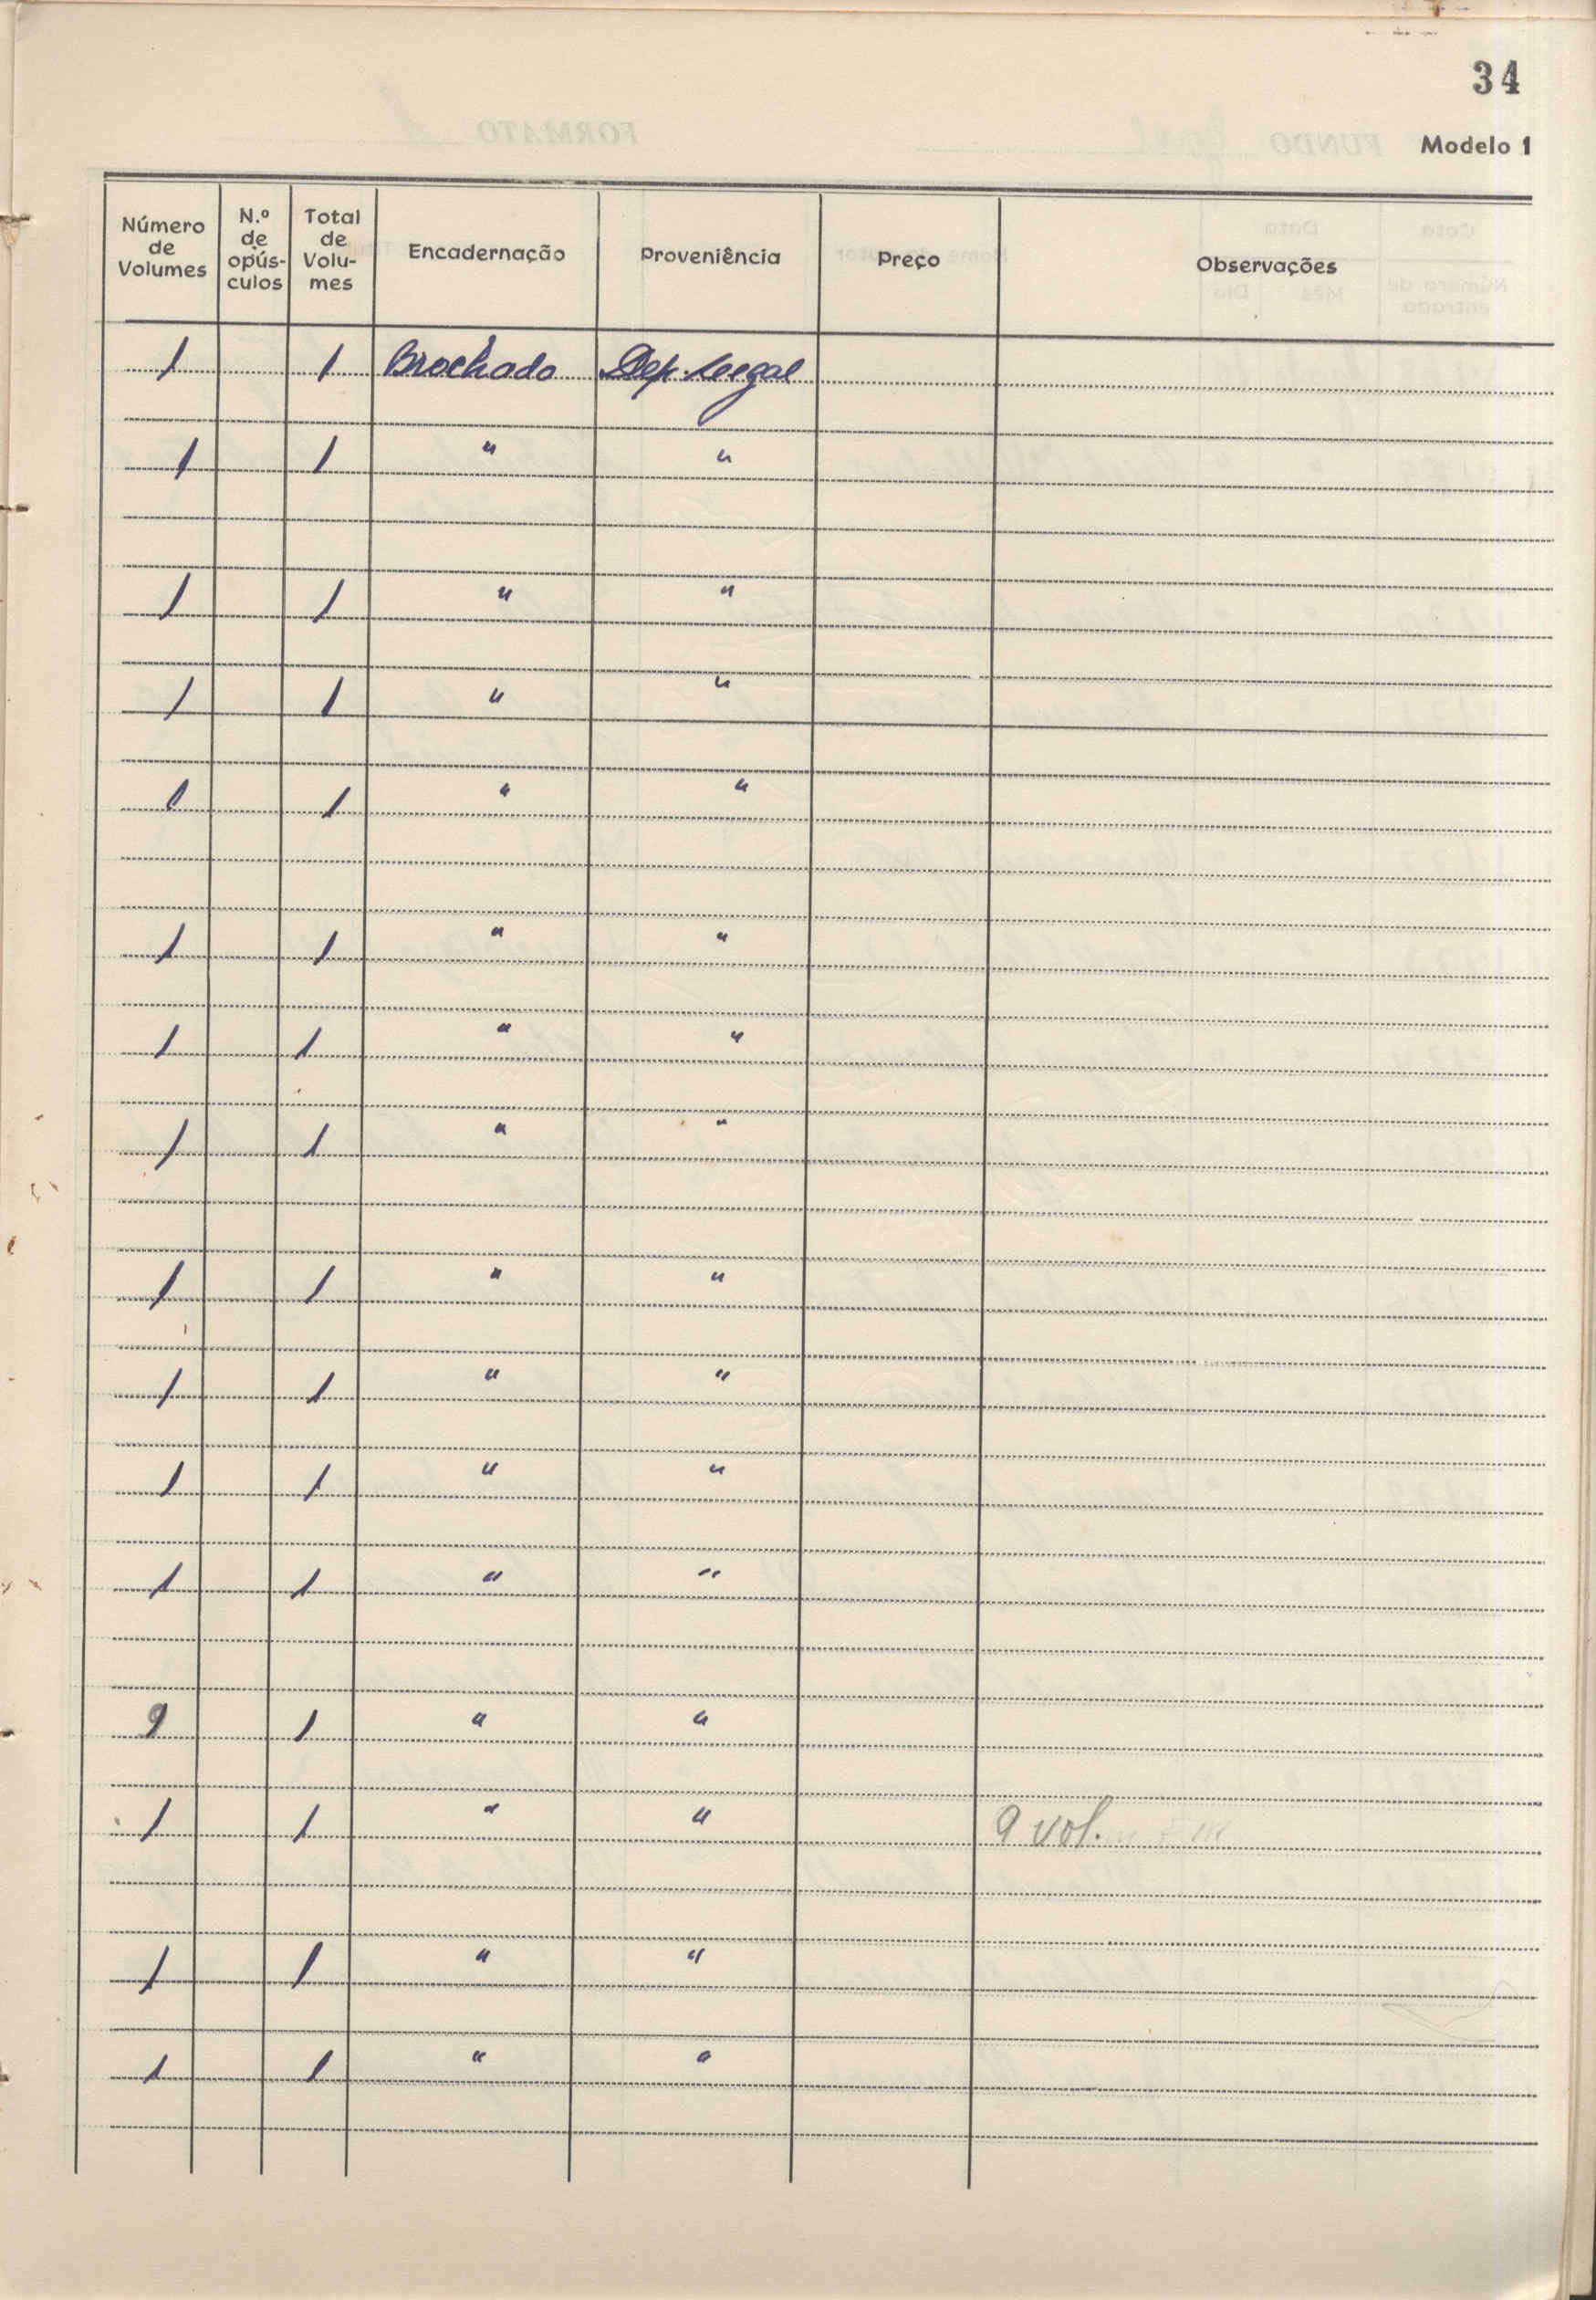 34
Modelo 1
Número de Volumes N.º de opús-culos Total de Volu-mes Encadernação Proveniência Preço Observações
1 1 Brochado Dep. Legal
1 1 " "
1 1 " "
1 1 " "
1 1 " "
1 1 " "
1 1 " "
1 1 " "
1 1 " "
1 1 " "
1 1 " "
1 1 " "
9 1 " "
1 1 " " 9 vol.
1 1 " "
1 1 " "